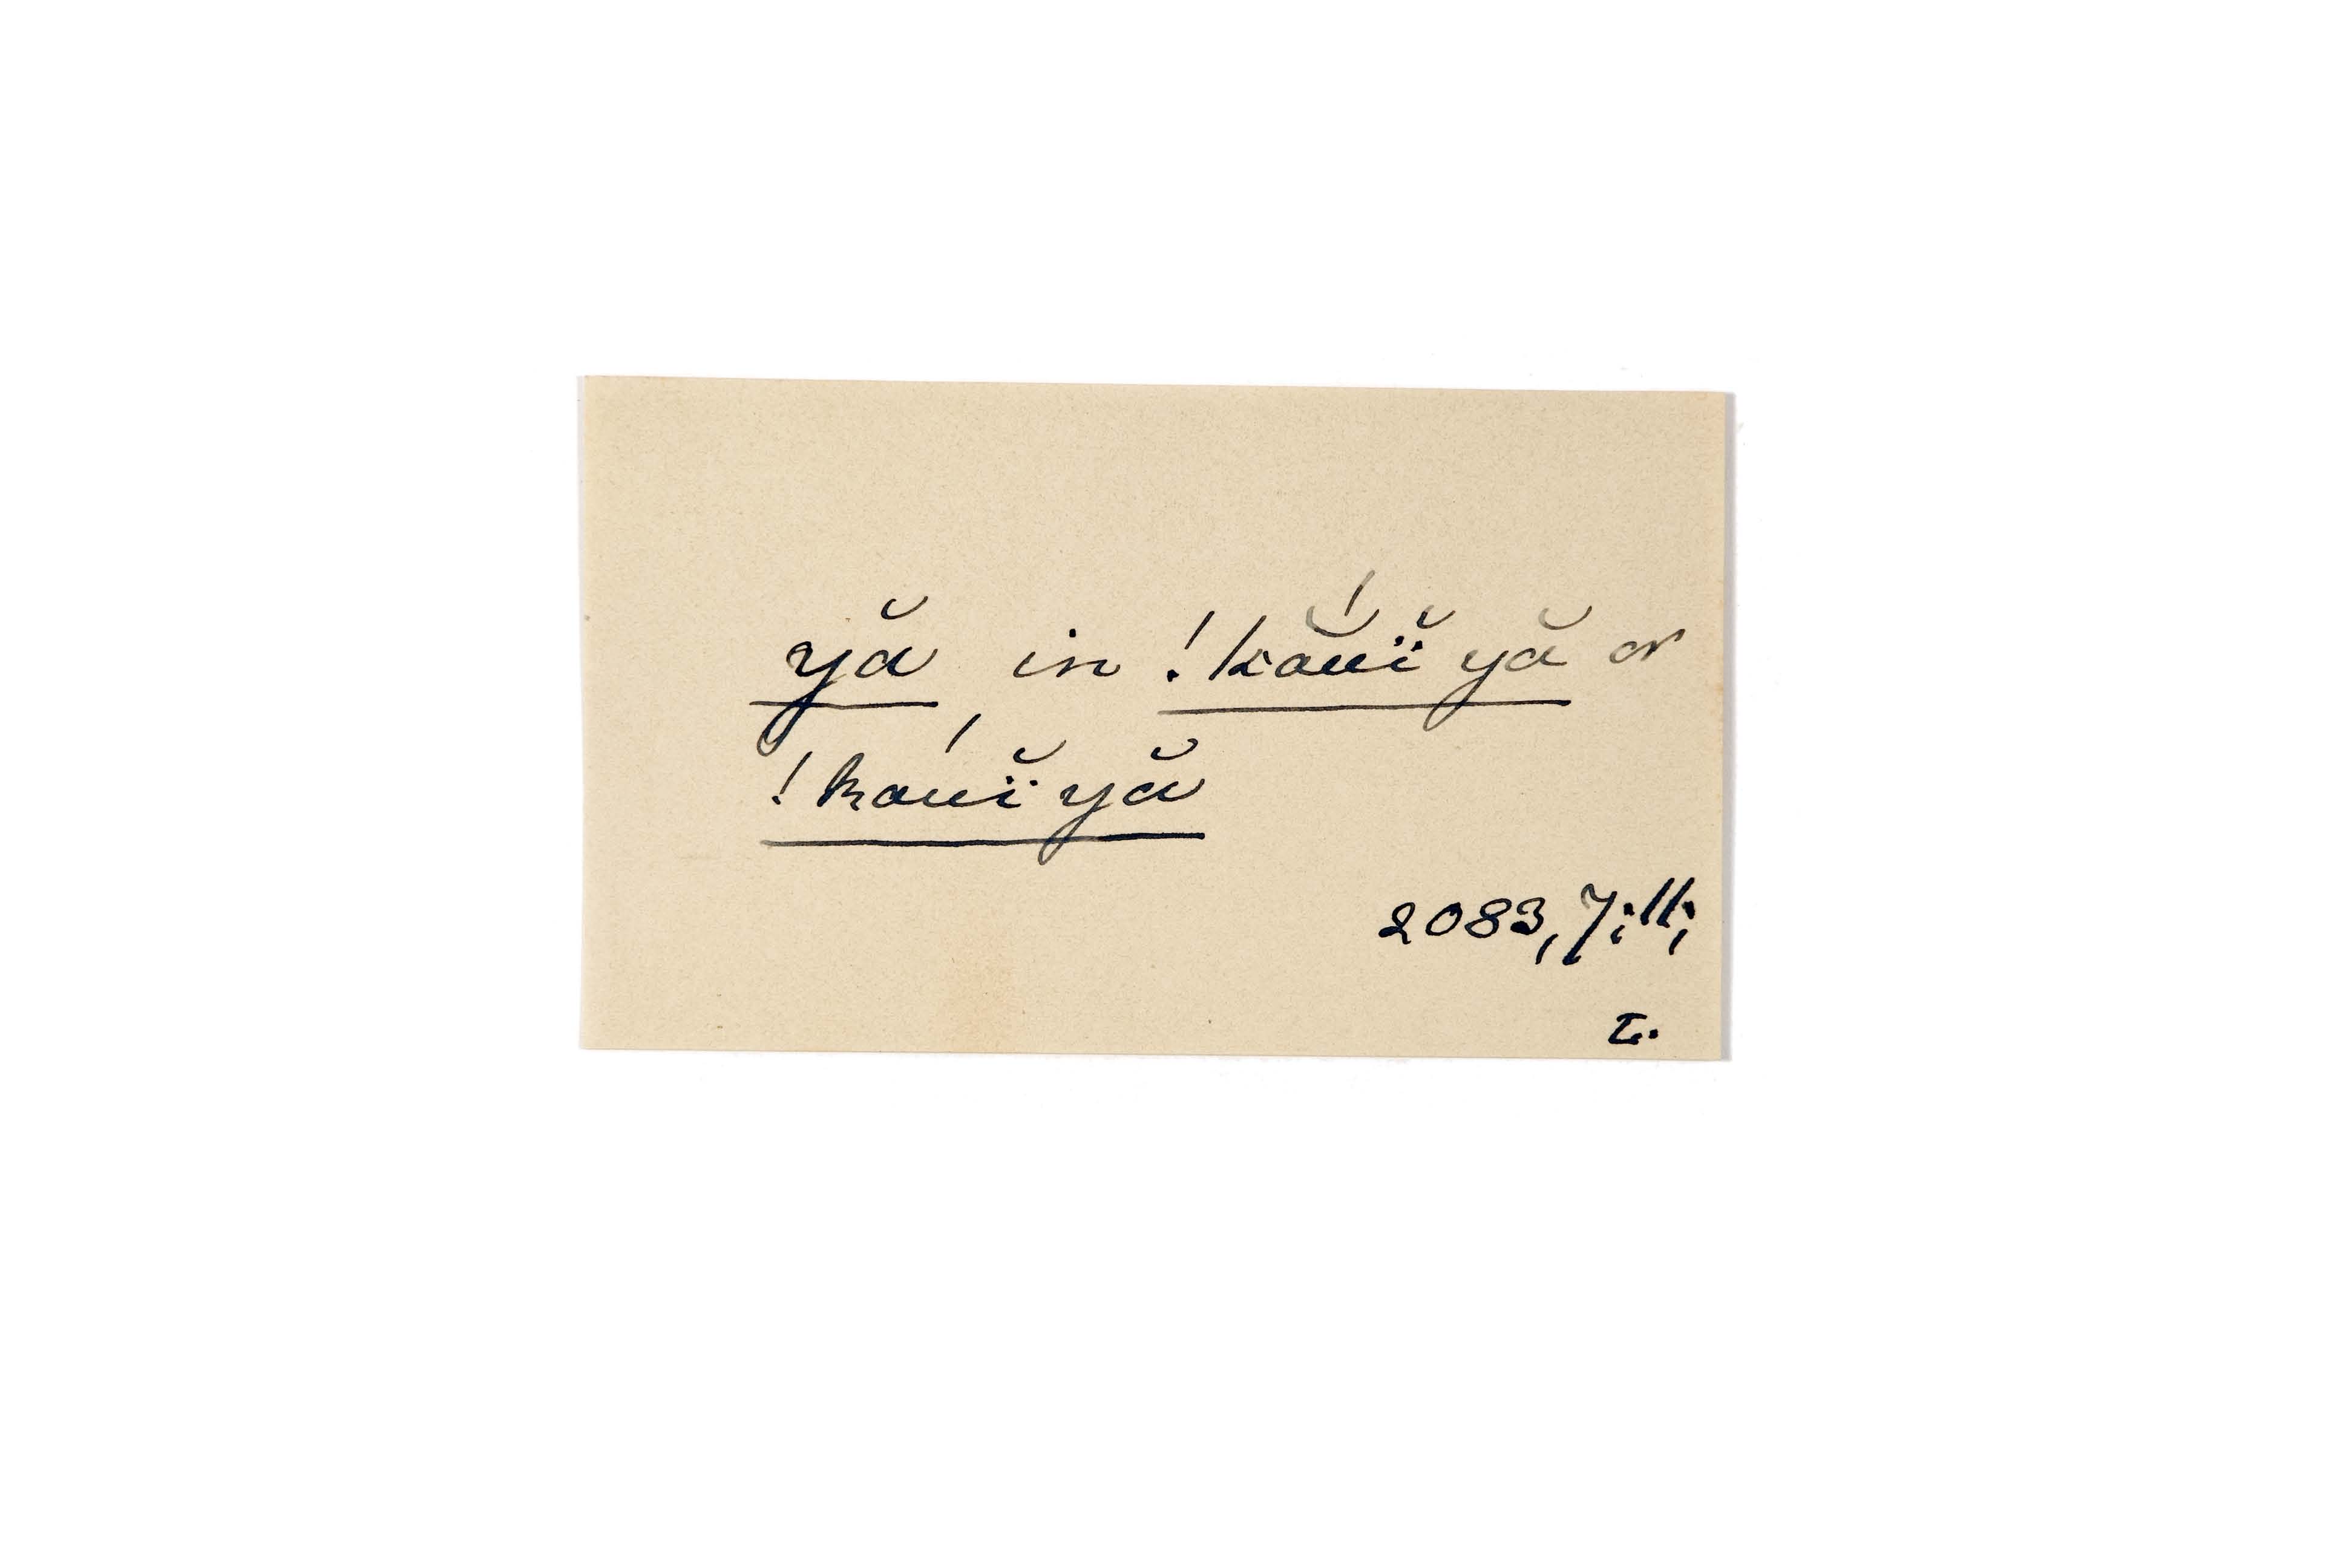 yă in !kắuĭ̈ yă or
!káuĭ̈ yă
2083, 7; 11;
L.